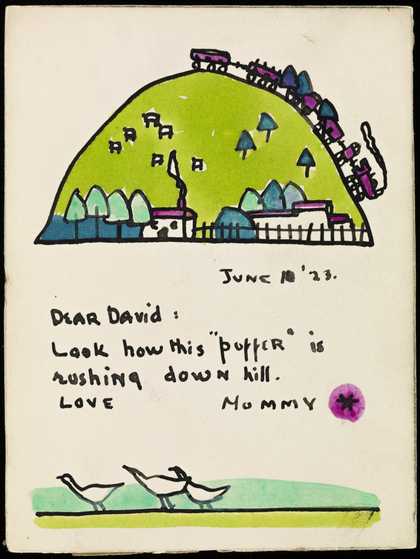 JUNE 18 '23.
DEAR DAVID:
Look how this "puffer" is
rushing down hill.
LOVE MUMMY